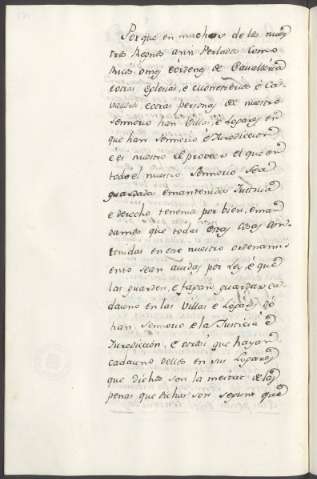 Porque en muchos de los nues
tros Regnos assi Perlados como
Ricos omes e ordenes de Cavalleria
e otras Eglesias, e monesterios e Ca-
valleros e otras personas del nuestro
Sennorio han Villas, e Logares en
que han Sennorio e Jurediccion
e es nuestro de proveer el que en
todo el nuestro Sennorio sea
guardada e mantenida Justicia
e derecho tenemos por bien, e man
damos que todas estas cosas con-
tenidas en este nuestro ordenami-
ento sean avidas por Ley é que
las guarden, e fagan guardar ca-
dauno en las Villas e Logares dó
han Sennorio e la Justicia e
Jurediccion, e otrosi que hayan
cadauno dellos en sus Logares
que dichos son la meitat de las
penas que dichas son segunt que